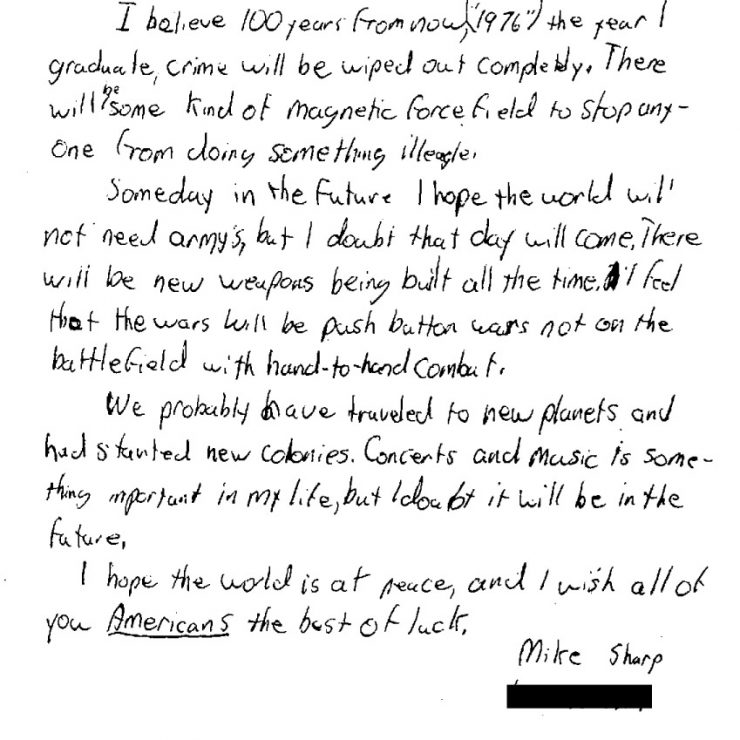 I believe 100 years from now, ("1976") the year I
graduate, crime will be wiped out completely. There
will be some kind of magnetic force field to stop any-
one from doing something illeagle.
Someday in the future I hope the world will
not need army's, but I doubt that day will come. There
will be new weapons being built all the time. I feel
that the wars will be push button wars not on the
battlefield with hand-to-hand combat.
We probably have traveled to new planets and
had started new colonies. Concerts and music is some-
thing mportant in my life, but I doubt it will be in the
future.
I hope the world is at peace, and I wish all of
you Americans the best of luck.
Mike Sharp